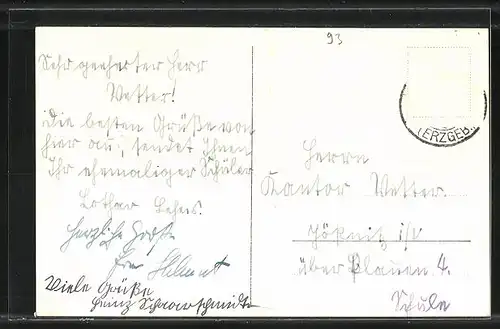 93
Sehr geehrter Herr
Vetter!
Die besten Grüße von
hier aus, sendet Ihnen
Ihr ehemaliger Schüler
Lothar
Herzliche Grüße
Helmut
Viele Grüße
Heinz Schwarschmidt
(ERZGEB.)
Herrn
Kantor Vetter.
Jößnitz i/V
über Plauen 4.
Schule